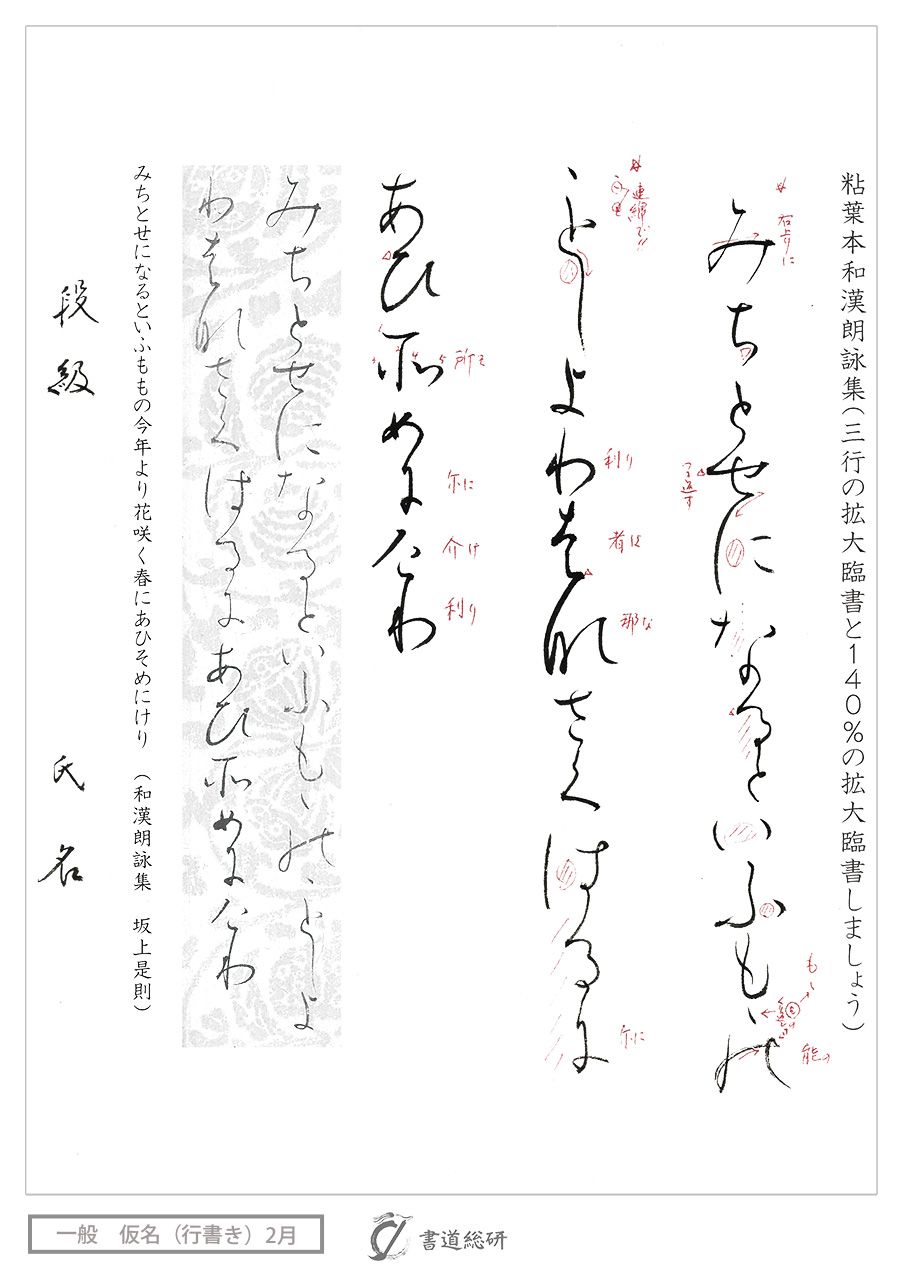 粘葉本和漢朗詠集(三行の拡大臨書と140%の拡大臨書しましょう)
右上りに
みちとせになるといふもゝの
つき返す
も
能の
連綿で!!
ことしよりはなさくはるに
利り
者は
那な
尓に
あひそめにけり
1 2 3 4 5
所そ
尓に
介け
利り
みちとせになるといふもゝのことしよ
りはなさくはるにあひそめにけり
みちとせになるといふももの今年より花咲く春にあひそめにけり (和漢朗詠集 坂上是則)
段級 氏名
一般 仮名(行書き)2月
書道総研